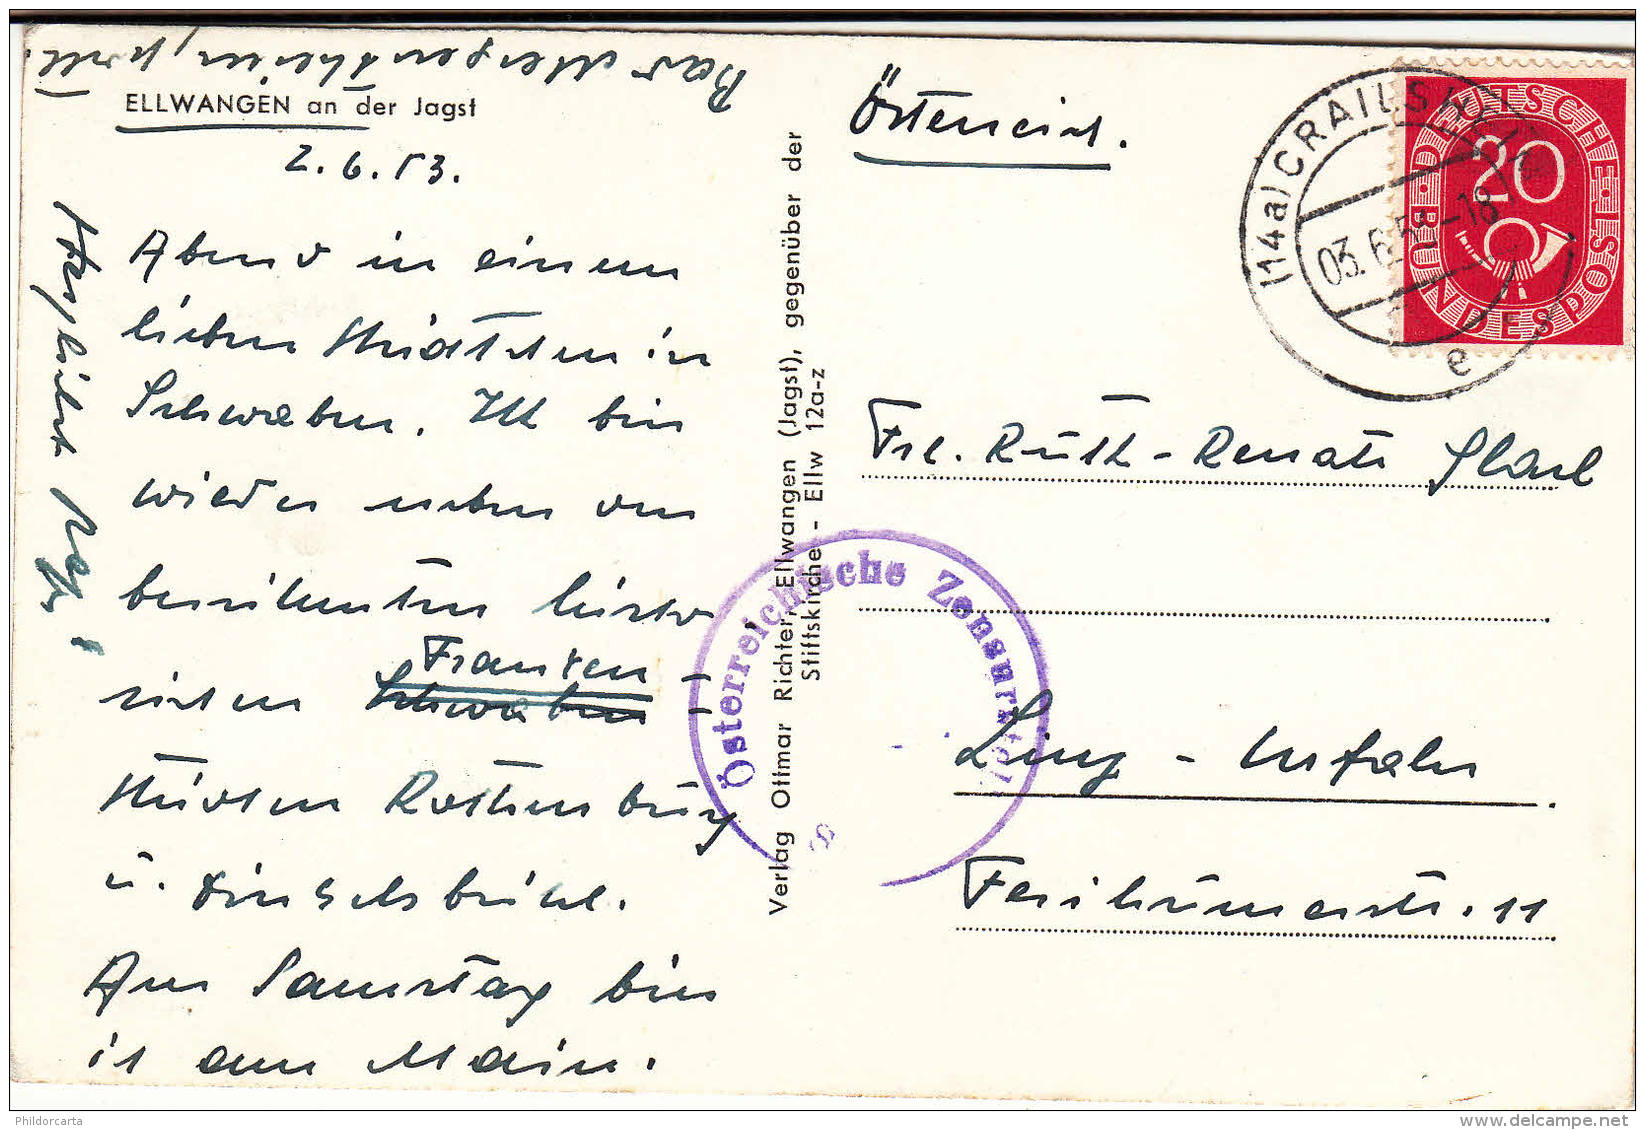 Bad Mergentheim,
ELLWANGEN an der Jagst
2.6.53.
Abend in einem
lieben Städtchen in
Schwaben. Ich bin
wieder neben den
berühmten histo-
rischen Franken -
Schwaben -
Städten Rothenburg
u. Dinkelsbühl.
Am Samstag bin
ich am Main.
Herzlichst
Verlag Ottmar Richter, Ellwangen (Jagst), gegenüber der
Stiftskirche - Ellw 12a-z
Österreich.
(14a) CRAILSHEIM
03.6.53-18
e
DEUTSCHE BUNDESPOST
20
Frl. Ruth-Renate
Österreichische Zensurstelle
Linz - Urfahr
Ferihumerstr. 11
Phildorcarta
www.delcampe.net